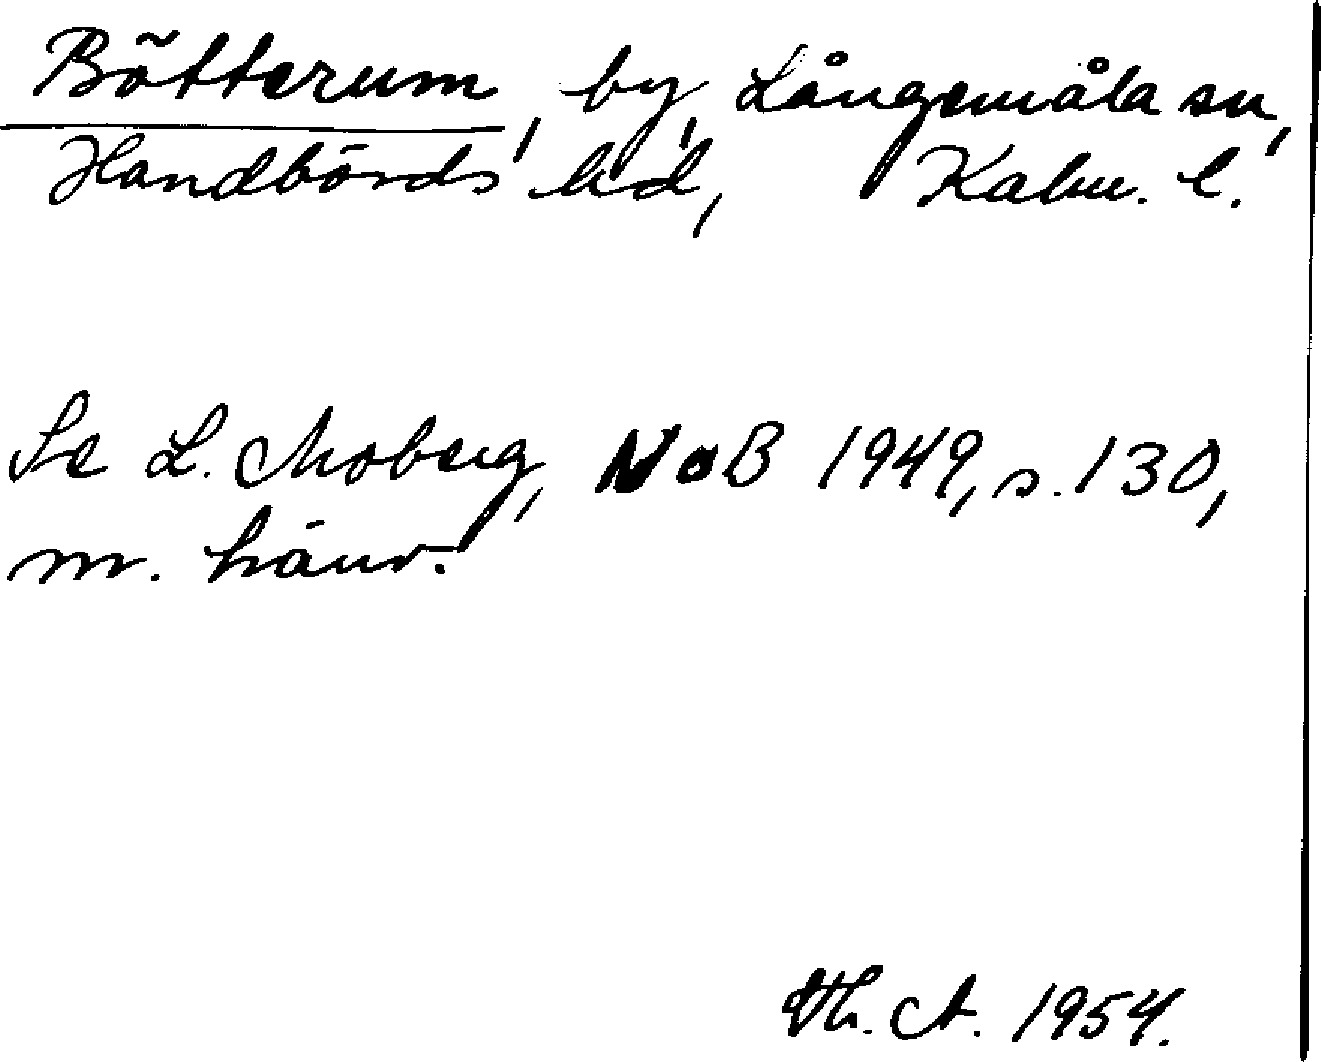 Bötterum, by, Långemåla sn,
Handbörds hd, Kalm. l.
Se L. Moberg, NoB 1949, s. 130,
m. hänv.
Th. A. 1954.